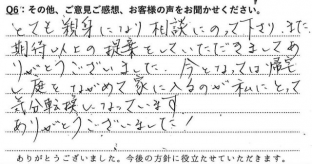 Q6：その他、ご意見ご感想、お客様の声をお聞かせください。
とても親身になり相談にのって下さり、また
期待以上の提案をしていただきましてあ
りがとうございました。今となっては帰宅
し庭をながめて家に入るのが私にとって
気分転換になっています
ありがとうございました！
ありがとうございました。今後の方針に役立たせていただきます。